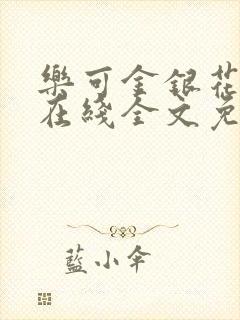 樂可金銀花
在綫全文免
藍小傘